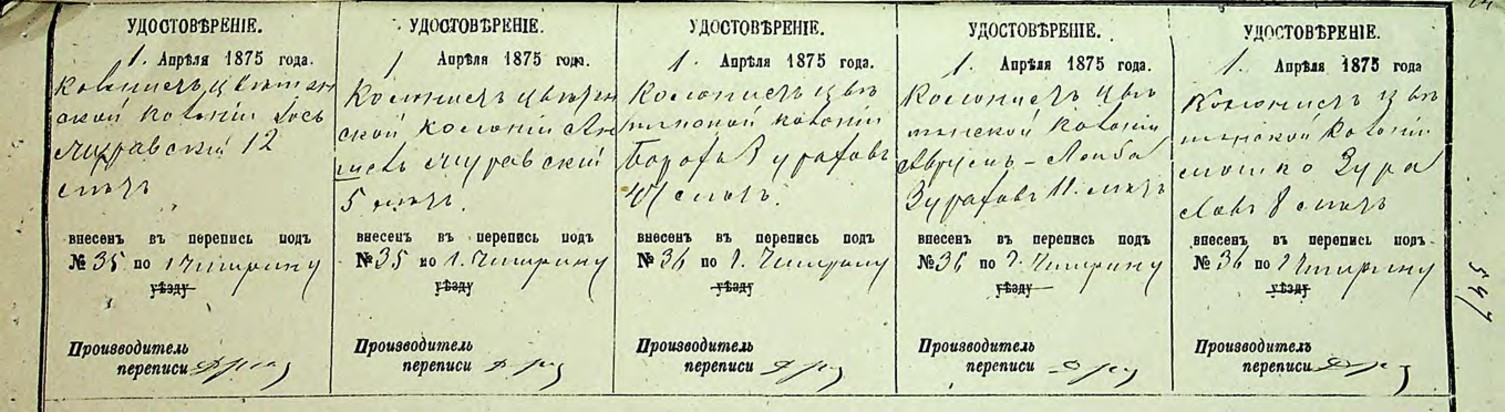 УДОСТОВѢРЕНІЕ.
1. Апрѣля 1875 года.
Колонистъ цвѣтян
ской колоніи Іось
Муравскій 12
лѣтъ
внесенъ въ перепись подъ
№ 35 по г. Чигирину
уѣзду
Производитель
переписи
УДОСТОВѢРЕНІЕ.
1 Апрѣля 1875 года.
Колонистъ цвѣтян
ской колоніи
Муравскій
5 лѣтъ.
внесенъ въ перепись подъ
№ 35 по г. Чигирину
уѣзду
Производитель
переписи
УДОСТОВѢРЕНІЕ.
1. Апрѣля 1875 года.
Колонистъ цвѣ
тянской колоніи
Борохъ Зурахов
лѣтъ.
внесенъ въ перепись подъ
№ 36 по г. Чигирину
уѣзду
Производитель
переписи
УДОСТОВѢРЕНІЕ.
1. Апрѣля 1875 года.
Колонистъ цвѣ
тянской колоніи
Аврумъ-Лейба
Зурахов 11 лѣтъ
внесенъ въ перепись подъ
№ 36 по г. Чигирину
уѣзду
Производитель
переписи
УДОСТОВѢРЕНІЕ.
1. Апрѣля 1875 года
Колонистъ цвѣ
тянской колоніи
Мошко Зура
ховъ 8 лѣтъ
внесенъ въ перепись подъ
№ 36 по г Чигирину
уѣзду
Производитель
переписи
547